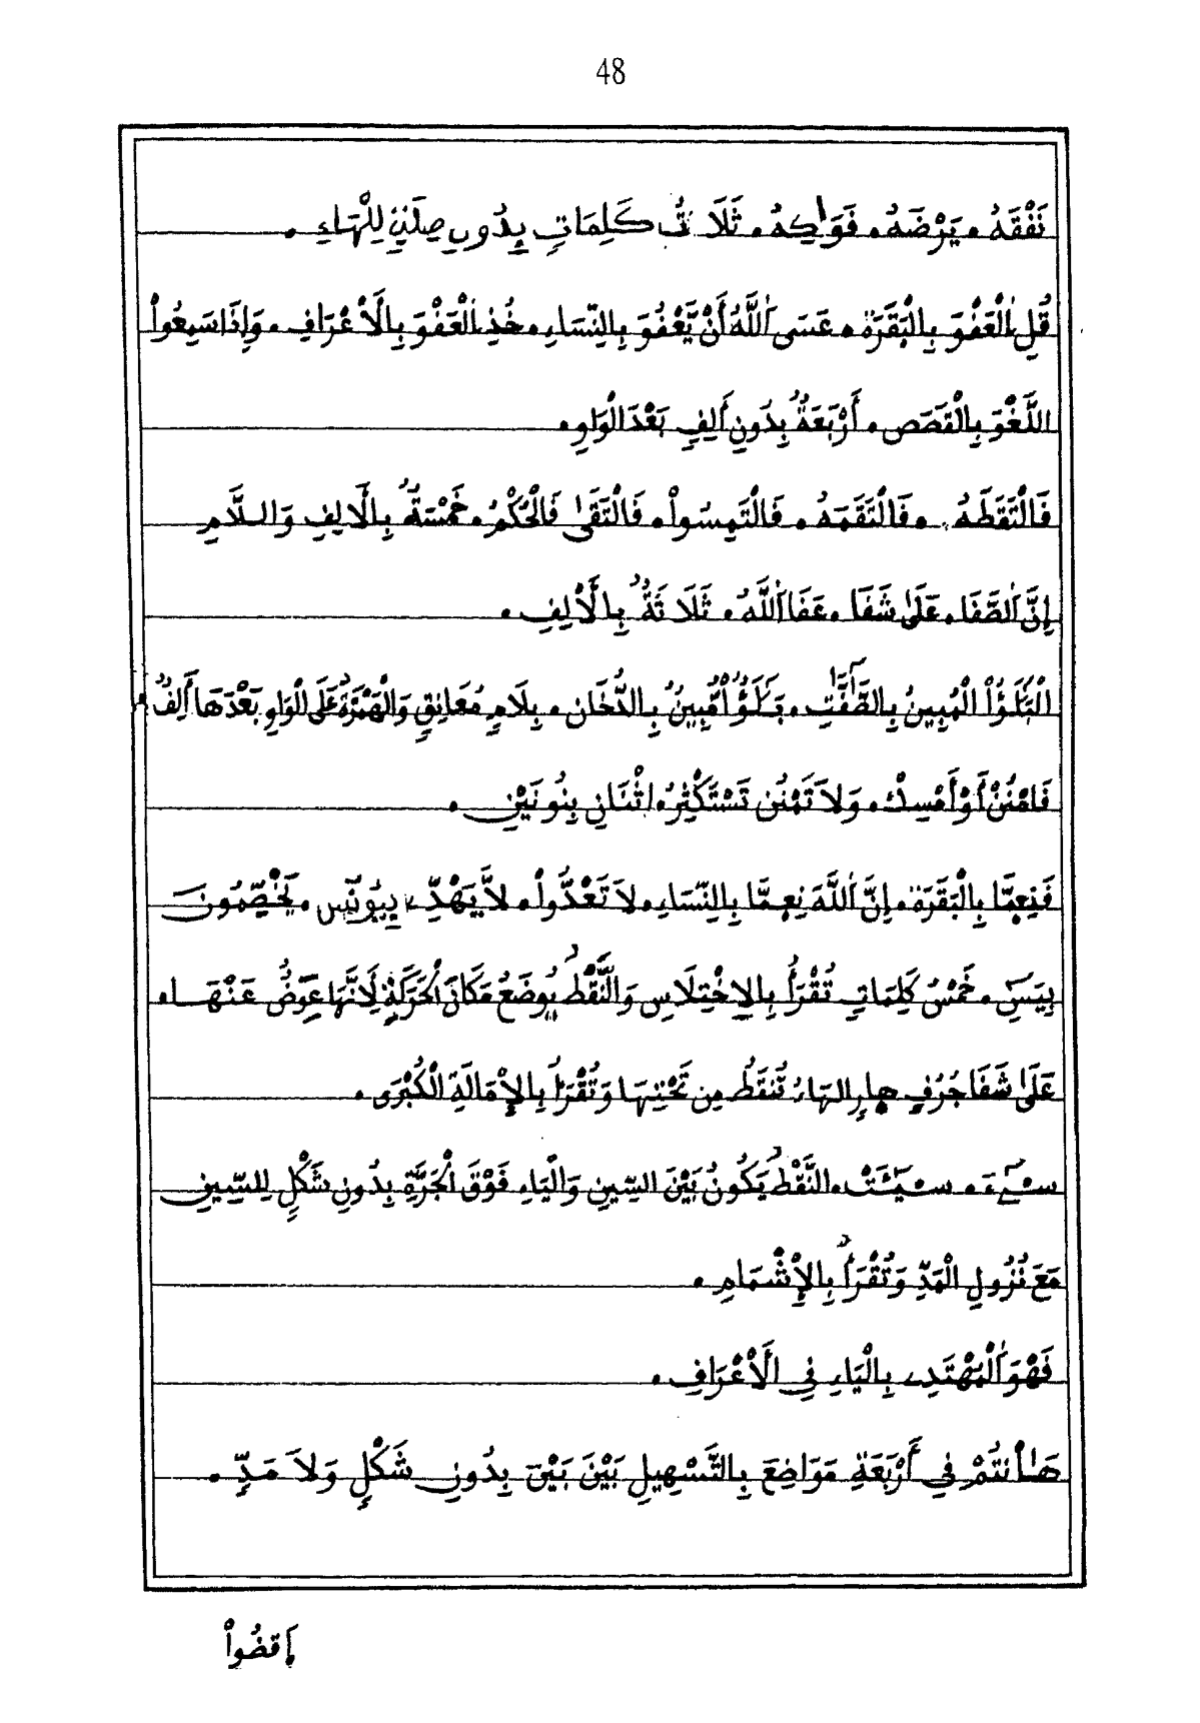 48
نَفْقَهُ. يَرْضَهُ. فَوَاكِهُ. ثَلَاثُ كَلِمَاتٍ بِدُونِ صِلَةٍ لِلْهَاءِ.
قُلِ الْعَفْوَ بِالْبَقَرَةِ. عَسَى اَللَّهُ أَنْ يَّعْفُوَ بِالنِّسَاءِ. خُذِ الْعَفْوَ بِالَأعْرَافِ. وَإِذَا سَمِعُواْ
اللَّغْوَ بِالْقَصَصِ. أَرْبَعَةٌ بِدُونِ أَلِفٍ بَعْدَ الْوَاوِ.
فَالْتَقَطَهُ. فَالْتَقَمَهُ. فَالْتَمِسُواْ. فَالْتَقَى فَالْحُكْمُ. خَمْسَةٌ بِالَالِفِ وَاللَّامِ
إِنَّ اَلصَّفَا. عَلَى شَفَا. عَفَا اَللَّهُ. ثَلَاثَةٌ بِالَأْلِفِ.
الْبَلَؤُاْ الْمُبِينُ بِالصَّفَّتِ. بَلَؤٌاْ مُّبِينٌ بِالدُّخَانِ. بِلَامٍ مُعَانِقٍ وَالْهَمْزَةُ عَلَى الْوَاوِ بَعْدَهَا أَلِفٌ
فَامْنُنْ أَوْ أَمْسِكْ. وَلَا تَمْنُن تَسْتَكْثِرُ. اثْنَانِ بِنُونَيْنِ.
فَنِعِمَّا بِالْبَقَرَةِ. إِنَّ اَللَّهَ نِعِمَّا بِالنِّسَاءِ. لَا تَعْدُّواْ. لَا يَهْدِّے بِيُونُسَ. يَخْصِّمُونَ
بِيَسَ. خَمْسُ كَلِمَاتٍ تُقْرَأُ بِالِاخْتِلَاسِ وَالنَّقْطُ يُوضَعُ مَكَانَ الْحَرَكَةِ لِأَنَّهَا عِوَضٌ عَنْهَا.
عَلَى شَفَا جُرُفٍ هِارٍ الهَاءُ تُنقَطُ مِن تَحْتِهَا وَتُقْرَأُ بِالِإمَالَةِ الْكُبْرَى.
سيءَ. سيئَتْ. النَّقْطُ يَكُونُ بَيْنَ السِّينِ وَالْيَاءِ فَوْقَ الْجَرَّةِ بِدُونِ شَكْلٍ لِلسِّينِ
مَعَ نُزُولِ الْمَدِّ وَتُقْرَأُ بِالِإشْمَامِ.
فَهْوَ اَلْمُهْتَدِے بِالْيَاءِ فِي الَأعْرَافِ.
هَاأنتُمْ فِي أَرْبَعَةِ مَوَاضِعَ بِالتَّسْهِيلِ بَيْنَ بَيْنَ بِدُونِ شَكْلٍ وَلَا مَدٍّ.
اَقضُواْ